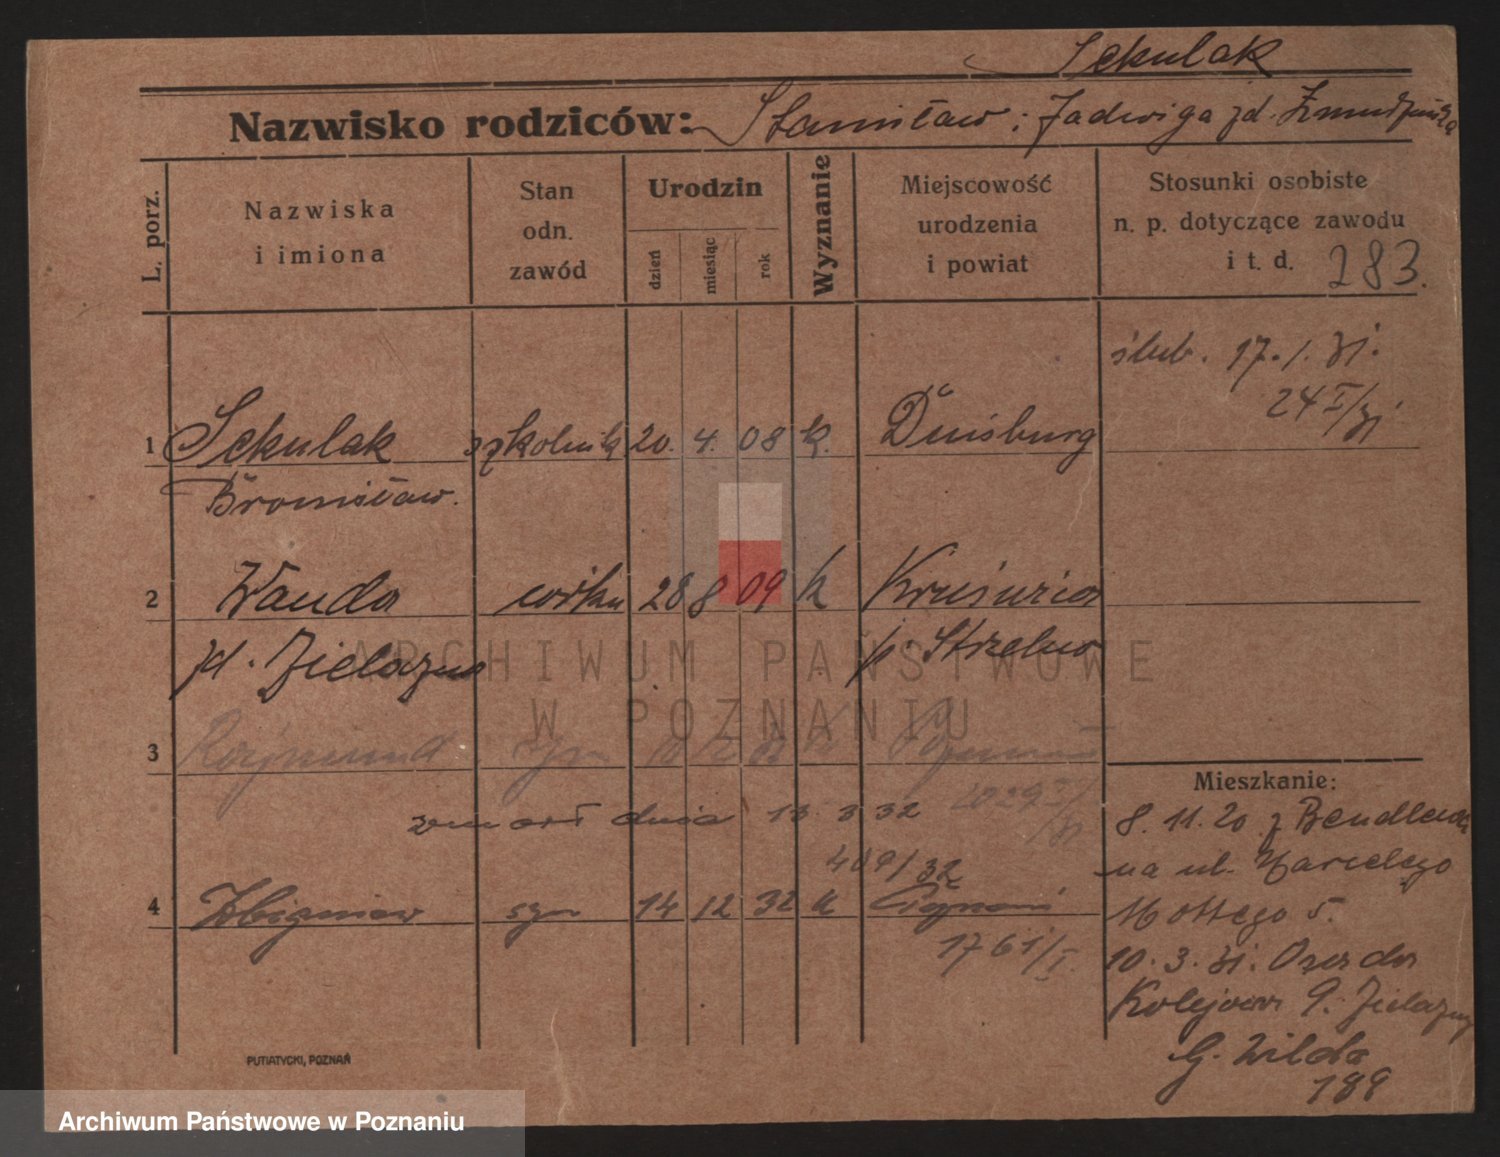 Sekulak
Nazwisko rodziców: Stanisław i Jadwiga zd.
L. porz.
Nazwiska
i imiona
Stan
odn.
zawód
Urodzin
dzień
miesiąc
rok
Wyznanie
Miejscowość
urodzenia
i powiat
Stosunki osobiste
n. p. dotyczące zawodu
i t. d. 283.
ślub. 17. 1. 31.
24 I/31
1 Sekulak 20. 4. 08 k. Duisburg
Bronisław.
2 Wanda 28 8 09 k Kruświca
zd. Żielazna p. Strzelno
3 Rajmund syn
zmarł dnia 13 3 32 2029
/31
409/32
4 Zbigniew syn 14 12 32 k Poznań
1761/I.
Mieszkanie:
8. 11. 20 z
na ul.
Mottego 5.
10. 3. 31. Osada
Kolejowa 9.
G. Wilda
189
PUTIATYCKI, POZNAŃ
ARCHIWUM PAŃSTWOWE
W POZNANIU
Archiwum Państwowe w Poznaniu